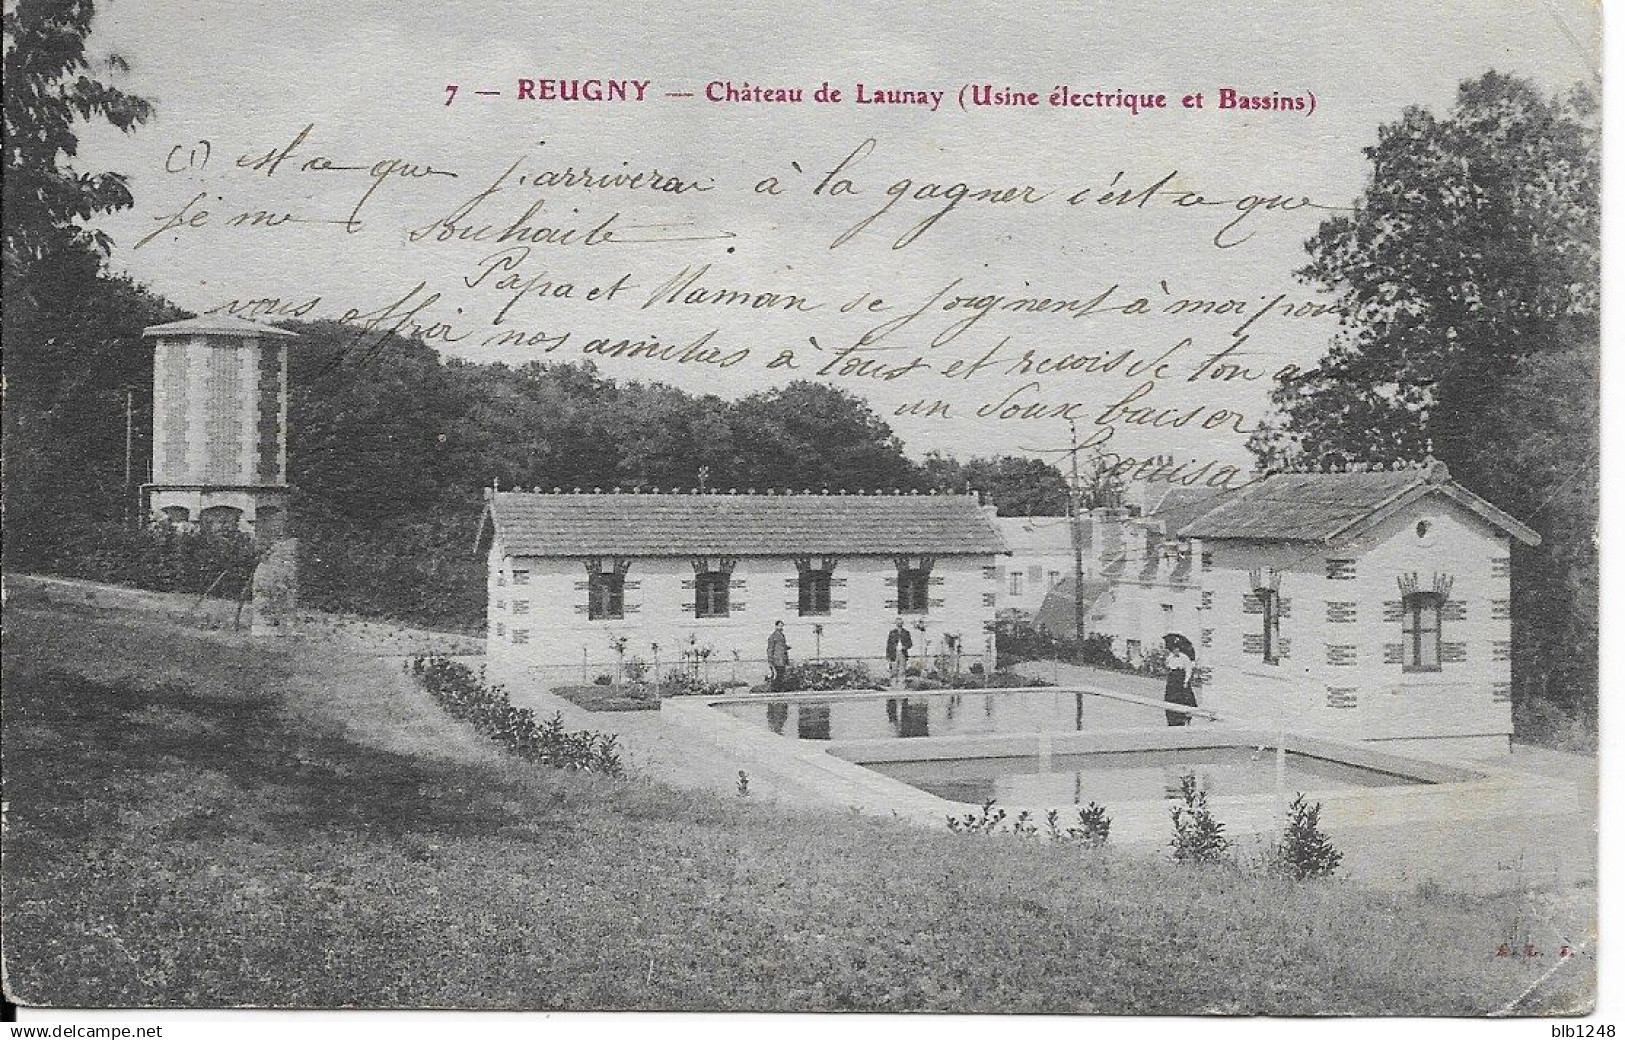 7 — REUGNY — Château de Launay (Usine électrique et Bassins)
(1) est ce que j'arriverai à la gagner c'est ce que
je me souhaite.
Papa et Maman se joignent à moi pour
vous offrir nos amitiés à tous et reçois de ton a
un doux baiser
Louisa
E. L. T.
delcampe.net
blb1248